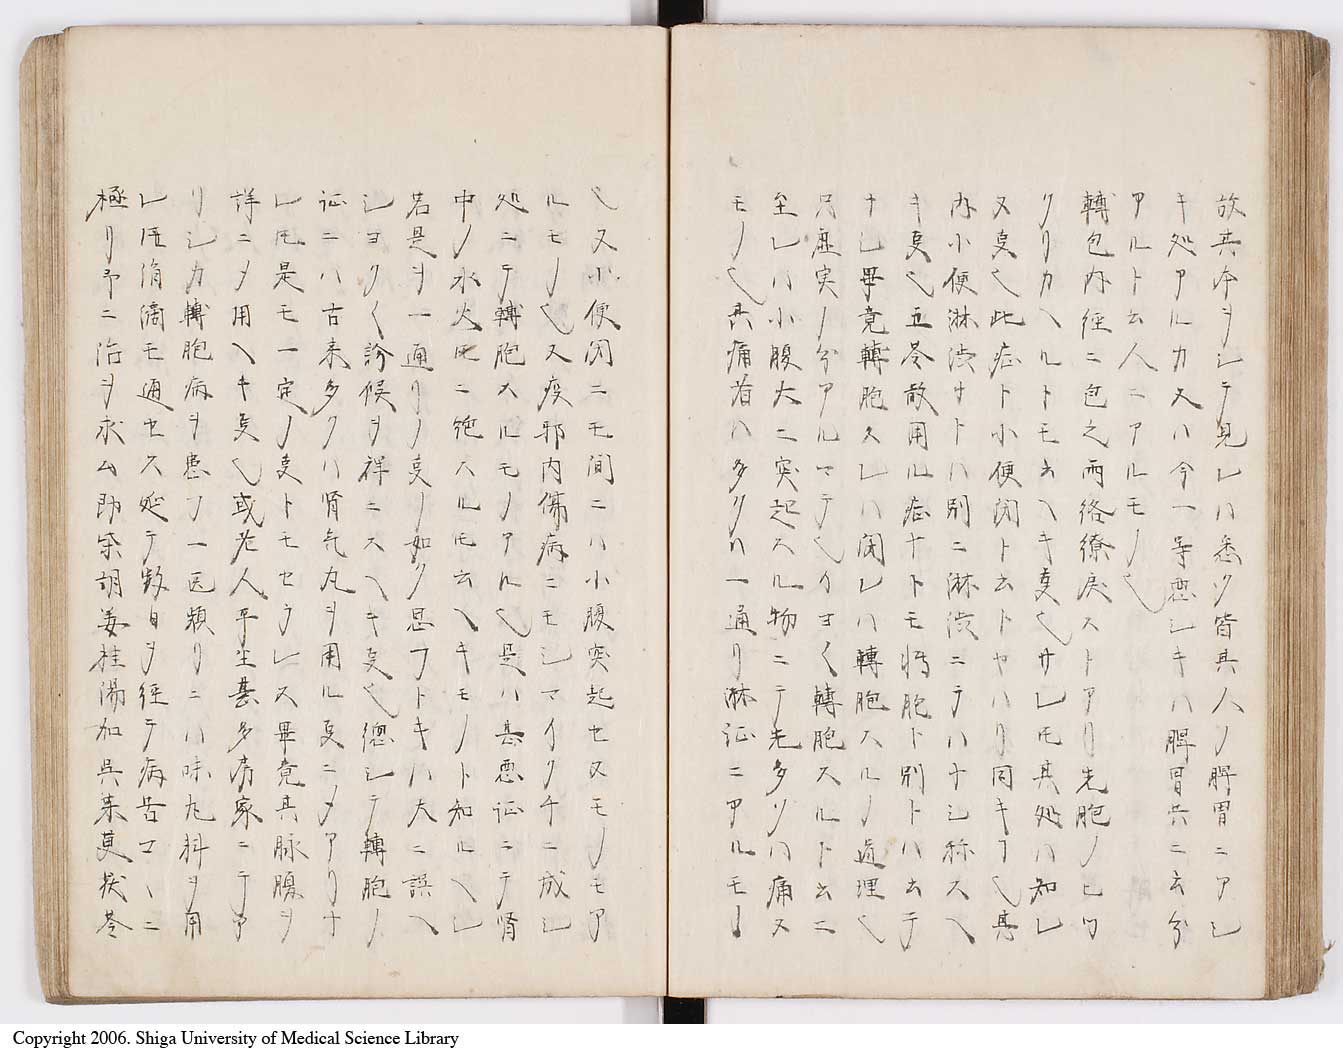 故其本ヲシテ見レハ悉ク皆其人ノ脾胃ニアシ
キ処アルカ又ハ今一等悪シキハ脾胃共ニ云分
アルト云人ニアルモノ也
轉包内經ニ包之両絡繚戻ストアリ先胞ノ已ツ
クリカヘルトモ云ヘキ叓也サレ𪜈其処ハ知レ
ヌ叓也此症ト小便閉ト云トヤハリ同キヿ也甚
内小便淋渋ナトハ別ニ淋渋ニテハナシ称スヘ
キ叓也五苓散用ル症ナトモ轉胞ト別トハ云テ
ナシ畢竟轉胞スレハ閉レハ轉胞スルノ道理也
只虚実ノ分アルマテ也イヨ〱轉胞スルト云ニ
至レハ小腹大ニ突起スル物ニテ先多クハ痛ス
モノ也其痛者ハ多クハ一通リ淋証ニアルモノ
也又小便閉ニモ間ニハ小腹突起セヌモノモア
ルモノ也又疫邪内傷病ニモシマイクチニ成シ
処ニテ轉胞スルモノアル也是ハ甚悪証ニテ腎
中ノ水火𪜈ニ絶スル𪜈云ヘキモノト知ルヘシ
若是ヲ一通リノ叓ノ如ク思フトキハ大ニ誤ヘ
シヨク〱診候ヲ祥ニスヘキ叓也總シテ轉胞ノ
証ニハ古来多クハ腎气丸ヲ用ル叓ニメアリナ
レ𪜈是モ一定ノ叓トモセラレス畢竟其脉腹ヲ
詳ニメ用ヘキ叓也或老人平生甚多房家ニテア
リシカ轉胞病ヲ患フ一医頻リニハ味丸料ヲ用
レ𪜈涓滴モ通セス延テ数日ヲ経テ病苦コヽニ
極リ予ニ治ヲ求ム即柴胡姜桂湯加呉茱萸茯苓